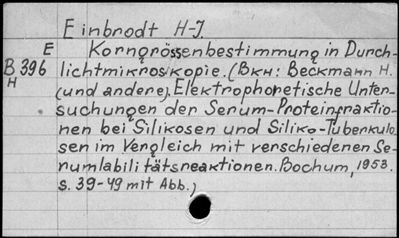 Einbrodt H-J.
E Korngrössenbestimmung in Durch-
B 396 lichtmikroskopie. (Вкн: Beckmann H.
H (und andere). Elektrophoretische Unter-
suchungen der Serum-Proteinfraktio-
nen bei Silikosen und Siliko-Tuberkulo
sen im Vergleich mit verschiedenen Se-
rumlabilitätsreaktionen. Bochum, 1953.
s. 39-49 mit Abb.)